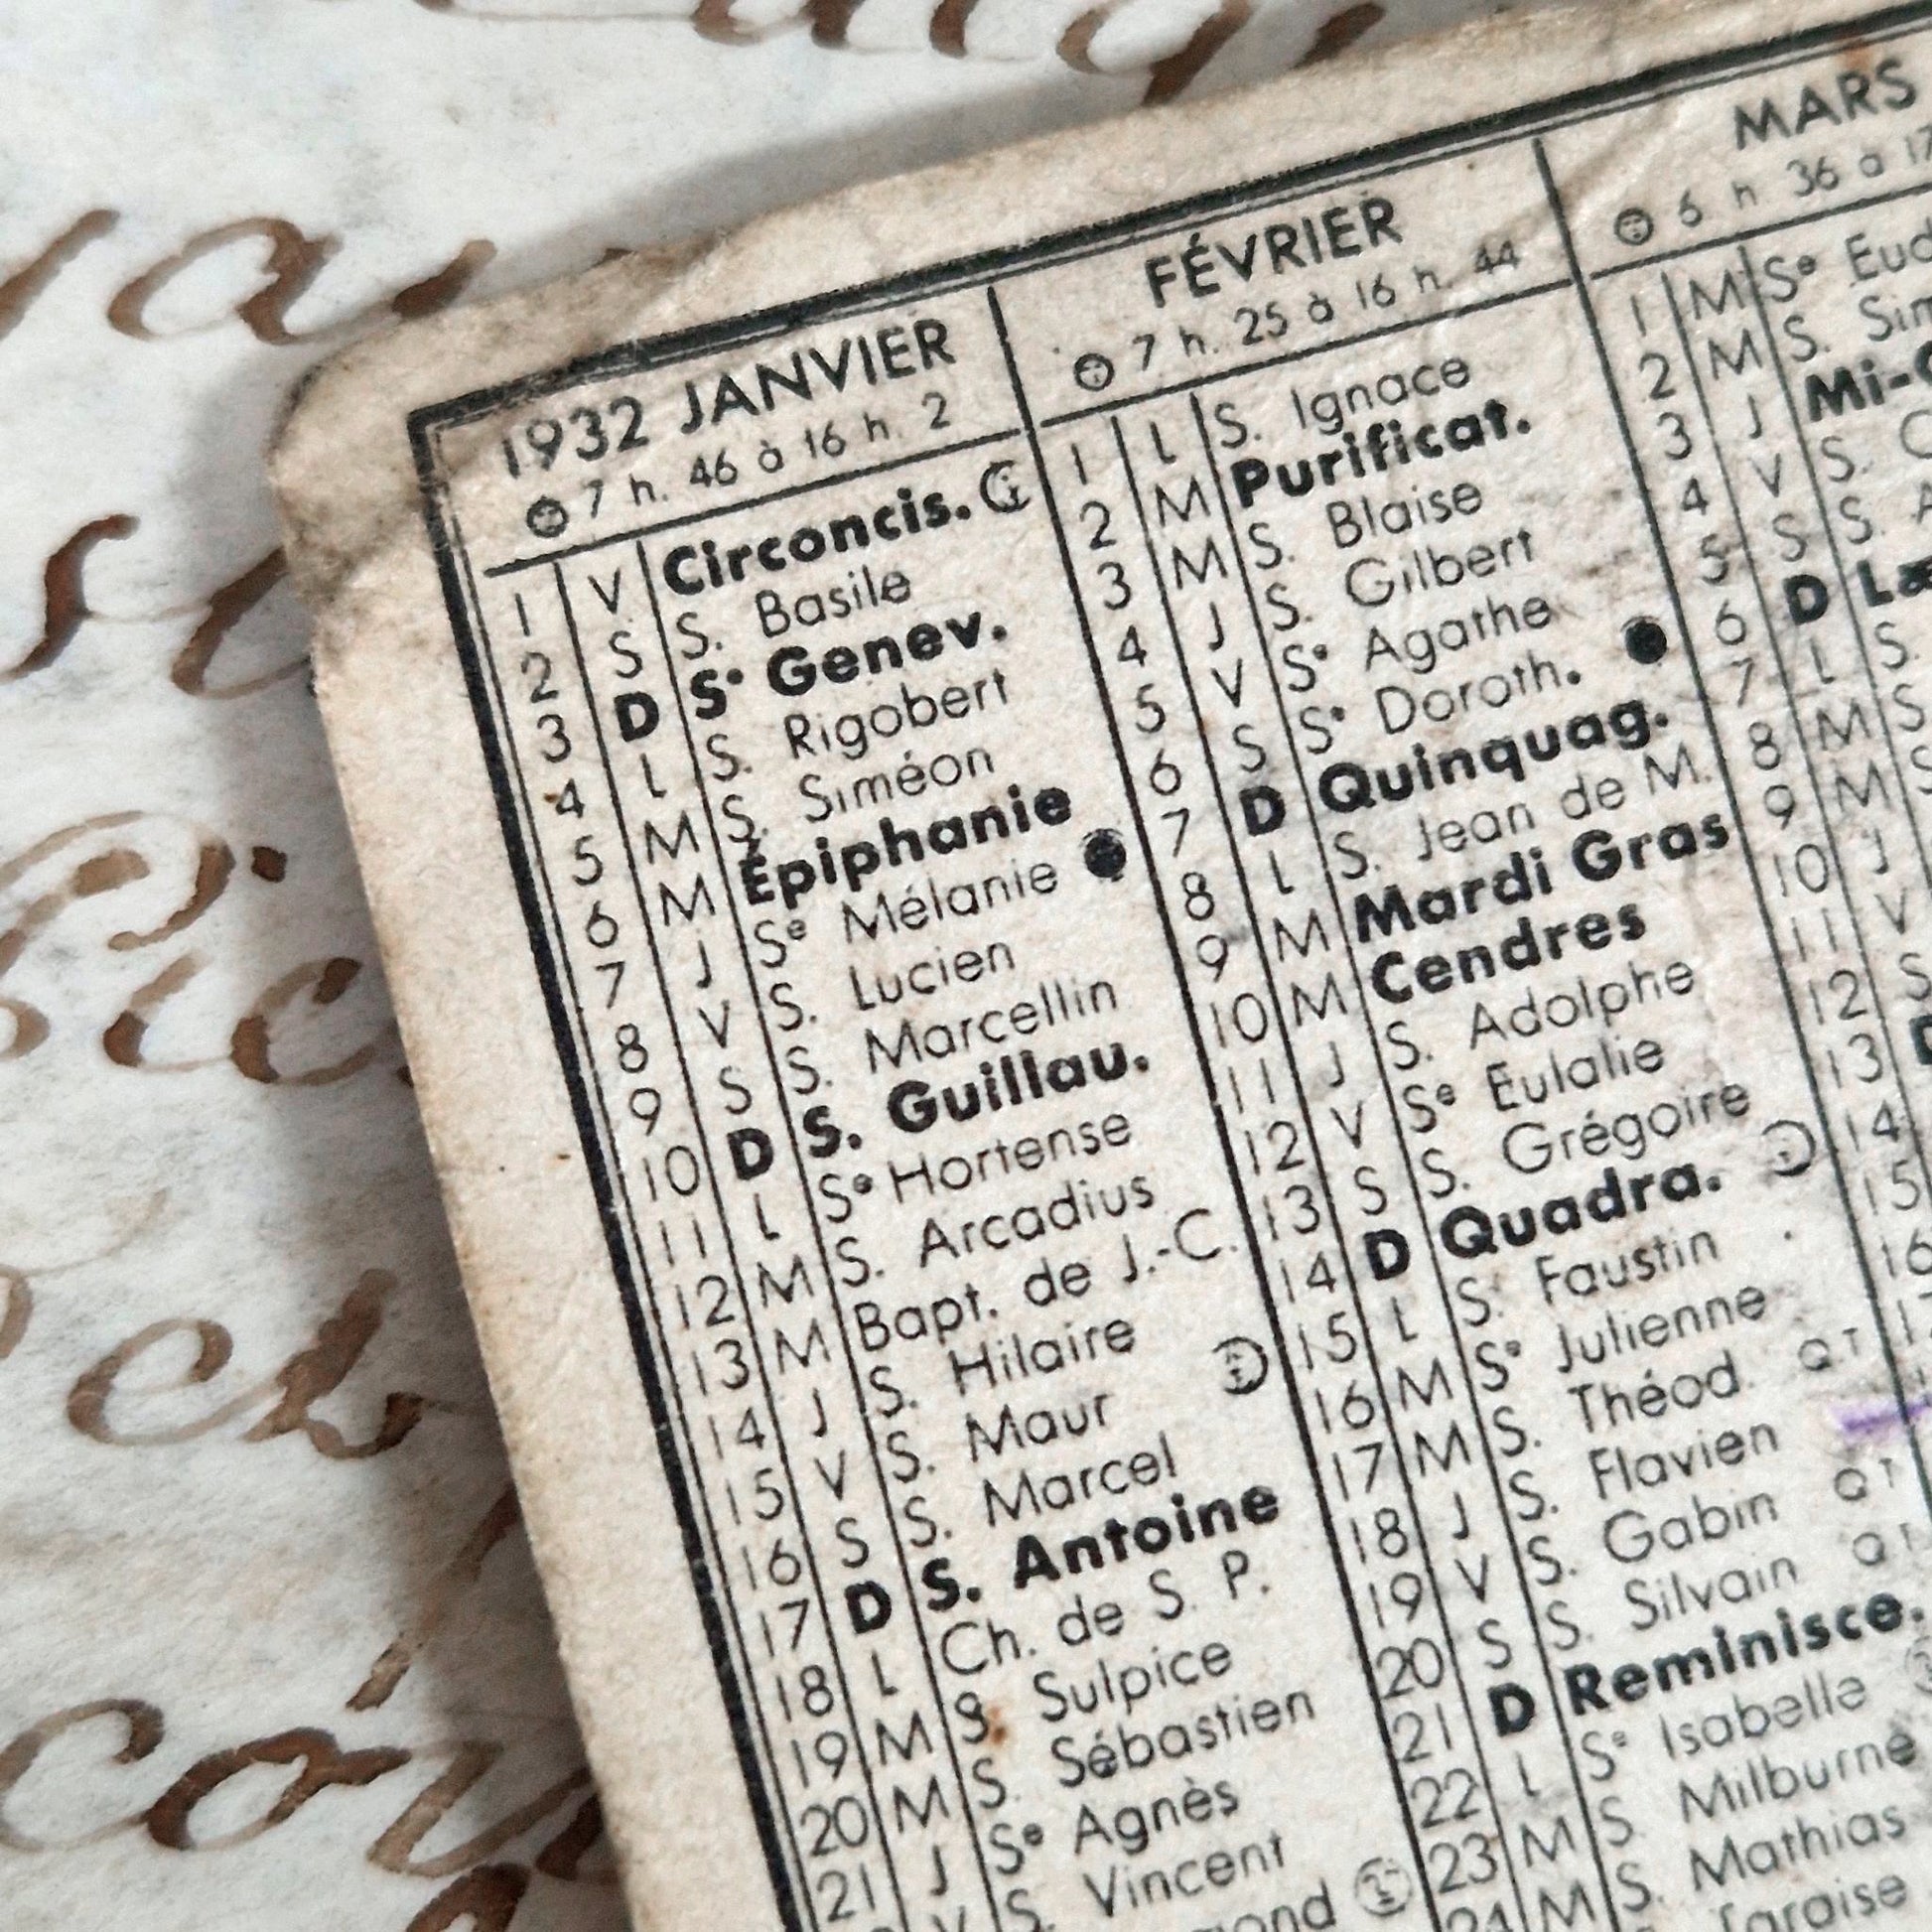 1932 JANVIER
7 h. 46 à 16 h. 2
1 V Circoncis.
2 S S. Basile
3 D Sᵉ Genev.
4 L S. Rigobert
5 M S. Siméon
6 M Épiphanie
7 J Sᵉ Mélanie
8 V S. Lucien
9 S S. Marcellin
10 D S. Guillau.
11 L Sᵉ Hortense
12 M S. Arcadius
13 M Bapt. de J.-C.
14 J S. Hilaire
15 V S. Maur
16 S S. Marcel
17 D S. Antoine
18 L Ch. de S. P.
19 M S. Sulpice
20 M S. Sébastien
21 J Sᵉ Agnès
V S. Vincent
FÉVRIER
7 h. 25 à 16 h. 44
1 L S. Ignace
2 M Purificat.
3 M S. Blaise
4 J S. Gilbert
5 V Sᵉ Agathe
6 S Sᵉ Doroth.
7 D Quinquag.
8 L S. Jean de M.
9 M Mardi Gras
10 M Cendres
11 J S. Adolphe
12 V Sᵉ Eulalie
13 S S. Grégoire
14 D Quadra.
15 L S. Faustin
16 M Sᵉ Julienne
17 M S. Théod. Q T
18 J S. Flavien
19 V S. Gabin Q T
20 S S. Silvain Q T
21 D Reminisce.
22 L Sᵉ Isabelle
23 M S. Milburne
24 M S. Mathias
MARS
6 h 36 à 17
1 M Sᵉ
2 M S.
3 J
4 V S.
5 S S.
6 D
7 L S.
8 M S.
9 M S
10 J
11 V
12 S
13 D
14
15
16